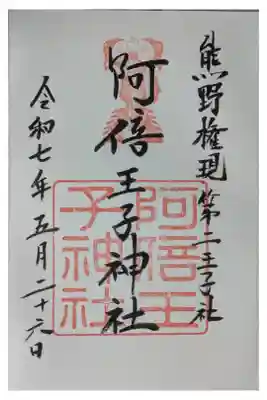 熊野権現第二王子社
阿倍王子神社
阿倍王
子神社
令和七年五月二十六日